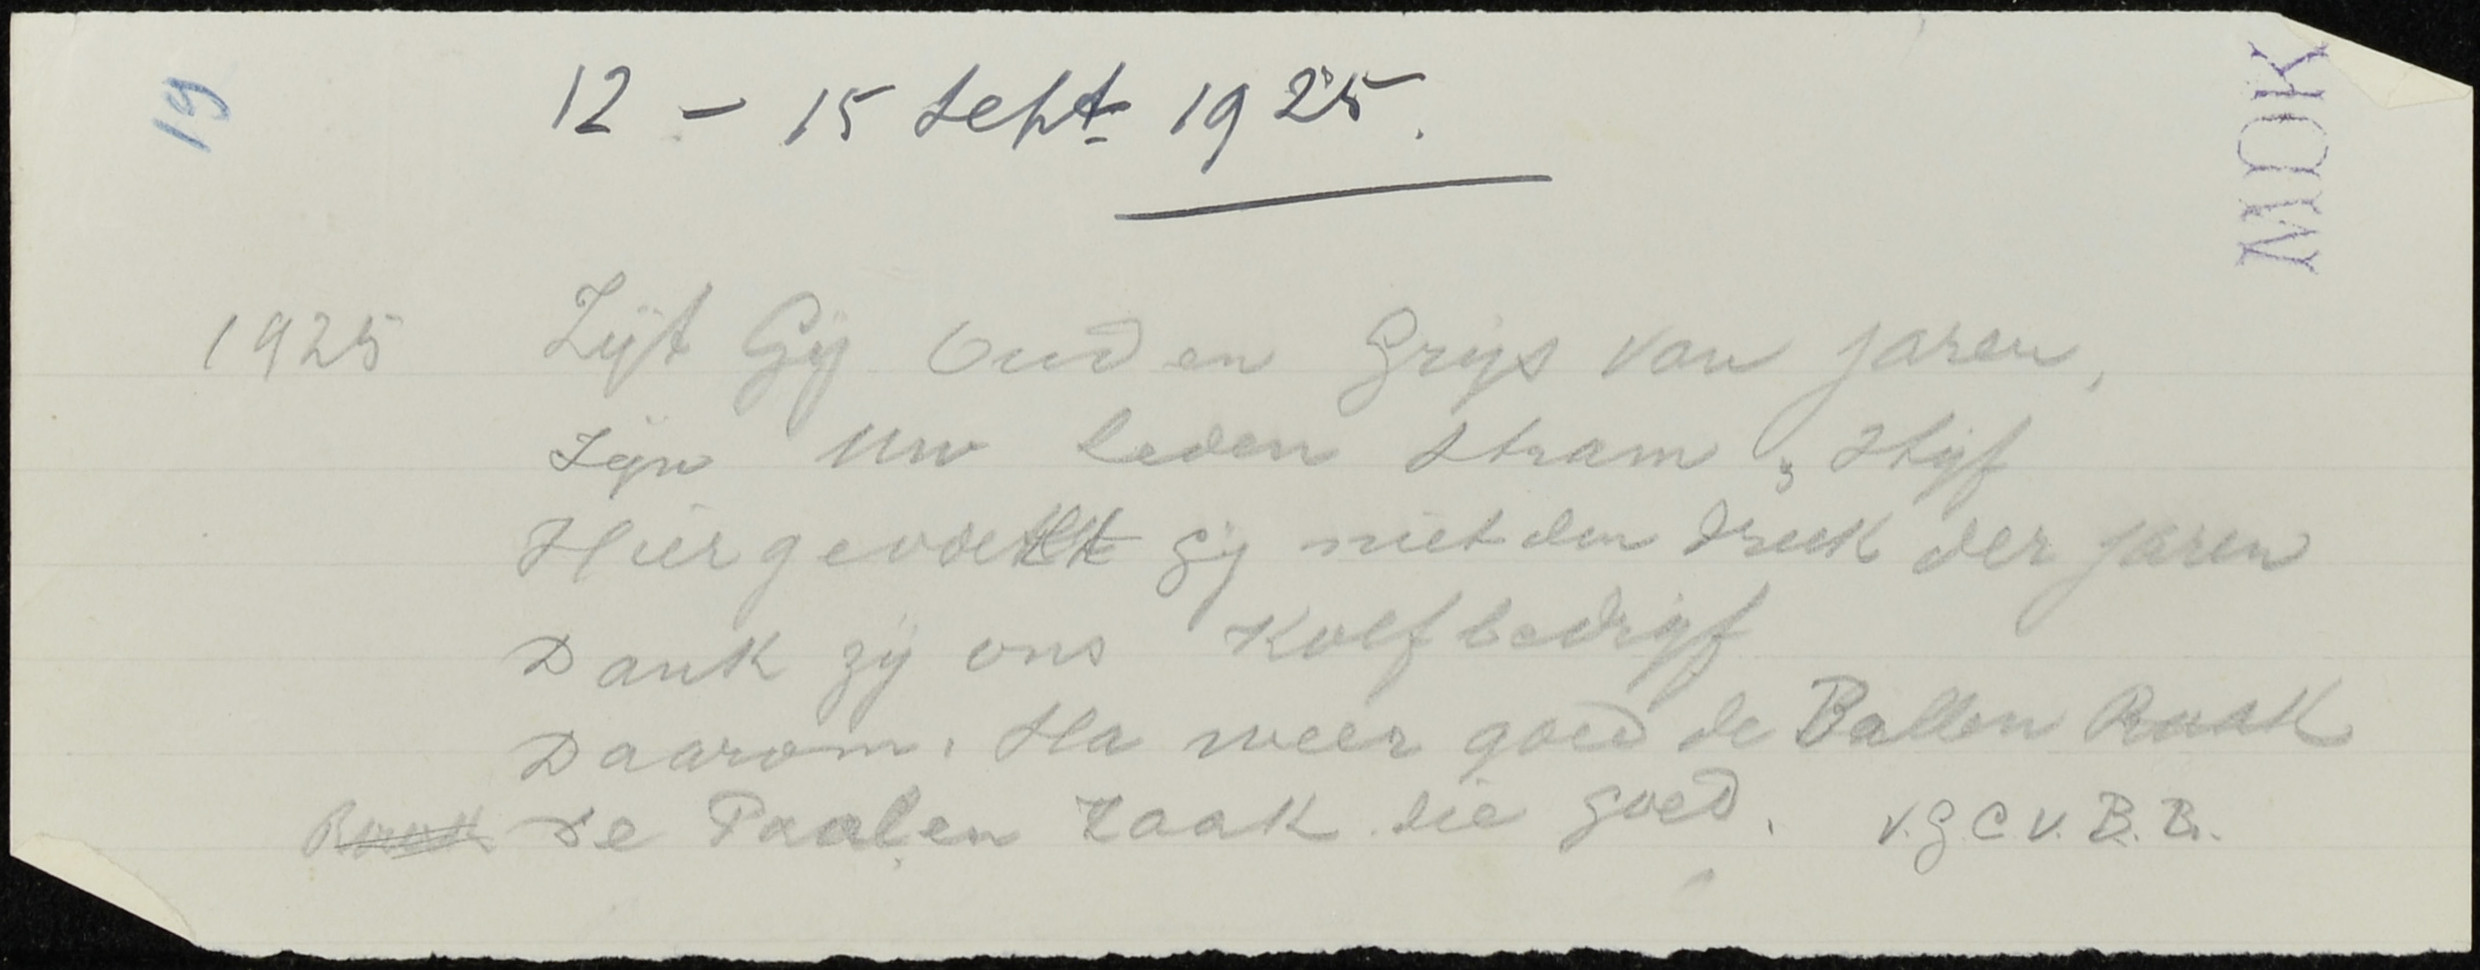 19
12 - 15 Sept 1925.
MOK
1925 Zijt Gij Oud en Grijs van jaren,
Zijn Uw Leden stram, Stijf
Hier gevoelt gij niet den druk der jaren
Dank zij ons Kolfbedrijf
Daarom. Sla weer goed de Ballen Raak
De Paalen Raak die goed. v. G. C. v. B. B.